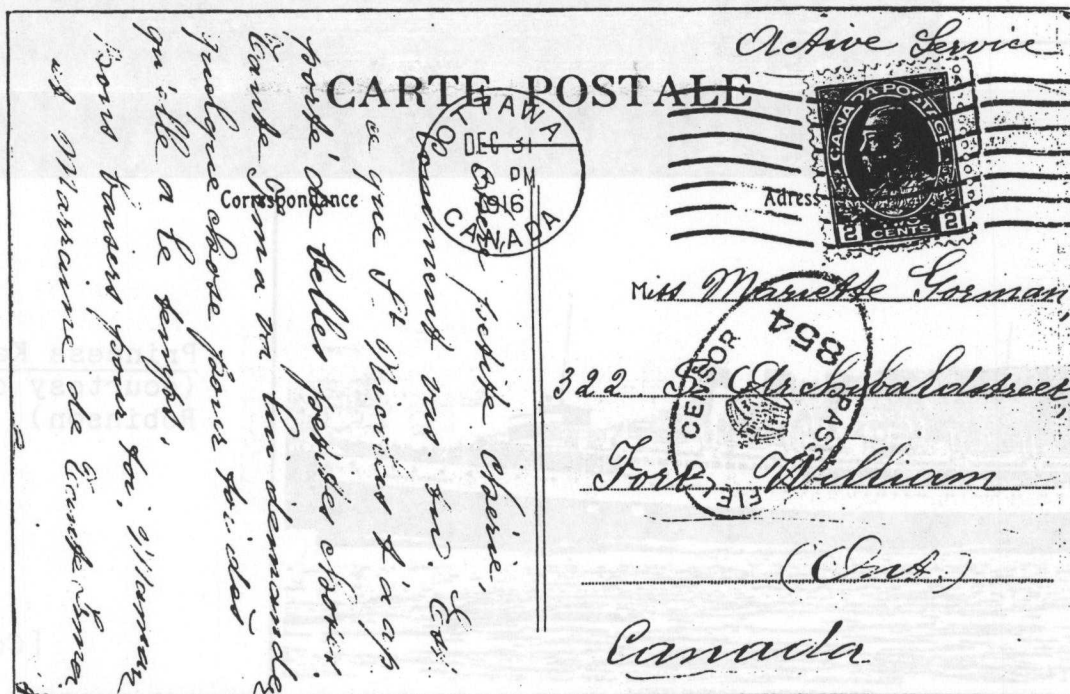 Active Service
CARTE POSTALE
OTTAWA
DEC 31
PM
1916
CANADA
CANADA POSTAGE
2 CENTS 2
Correspondance
Adresse
Miss Mariette Gorman,
322 S. Archibaldstreet,
Fort William
(Ont.)
Canada.
PASSED FIELD CENSOR
854
Chère petite Chérie,
Comment vas tu? Es
ce que St Nicolas t'a ap
porté de belles petites choses
Tante Irma va lui demander
quelque chose pour toi dès
qu'elle a le temps.
Bons baisers pour toi, Maman
et Marraine de Tante Irma